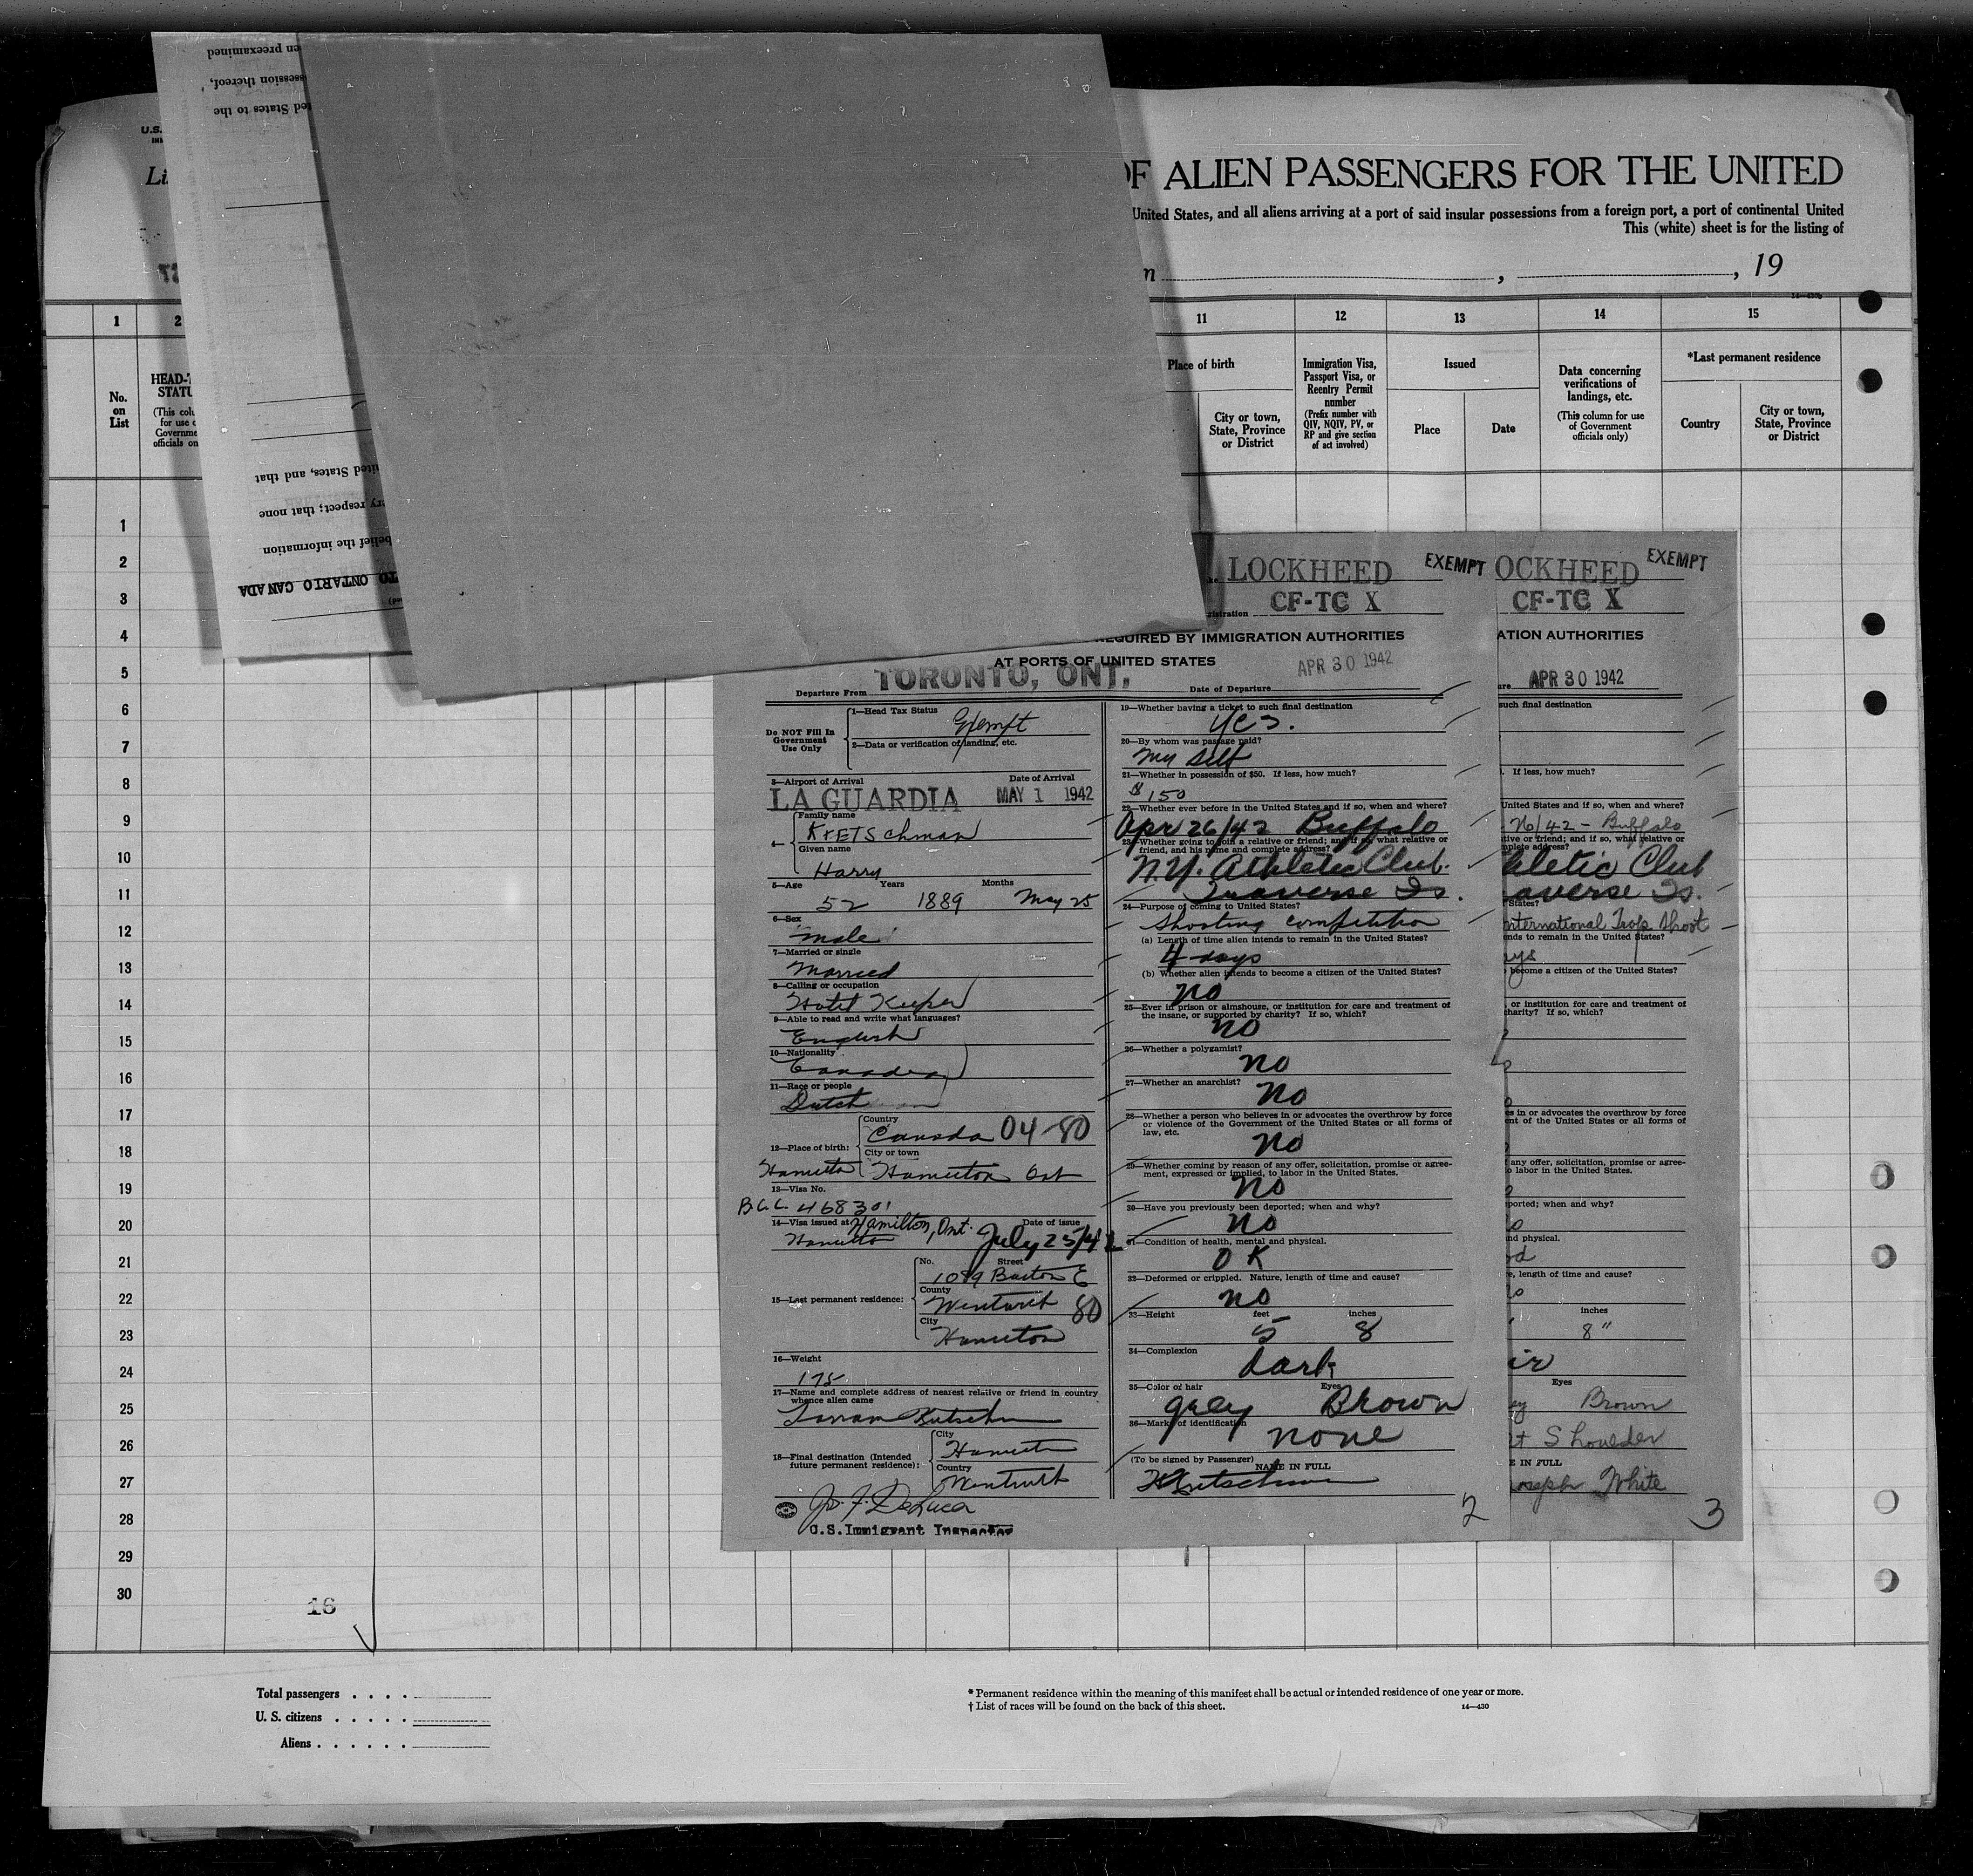 en preexamined
ssession thereof,
ted States to the
ited States, and that
ry respect; that none
belief the information
TO ONTARIO CANADA
U.S.
Li
OF ALIEN PASSENGERS FOR THE UNITED
United States, and all aliens arriving at a port of said insular possessions from a foreign port, a port of continental United
This (white) sheet is for the listing of
, , 19
1 2 11 12 13 14 15
No.
on
List
HEAD-T
STATU
(This colu
for use o
Governme
officials on
Place of birth
City or town,
State, Province
or District
Immigration Visa,
Passport Visa, or
Reentry Permit
number
(Prefix number with
QIV, NQIV, PV, or
RP and give section
of act involved)
Issued
Place Date
Data concerning
verifications of
landings, etc.
(This column for use
of Government
officials only)
*Last permanent residence
Country
City or town,
State, Province
or District
1
2
3
4
5
6
7
8
9
10
11
12
13
14
15
16
17
18
19
20
21
22
23
24
25
26
27
28
29
30
16
LOCKHEED EXEMPT
istration CF-TC X
REQUIRED BY IMMIGRATION AUTHORITIES
AT PORTS OF UNITED STATES
Departure From TORONTO, ONT. Date of Departure APR 30 1942
Do NOT Fill In
Government
Use Only
1—Head Tax Status
Exempt
2—Data or verification of landing, etc.
3—Airport of Arrival Date of Arrival
LA GUARDIA MAY 1 1942
4—
Family name
Kretschman
Given name
Harry
5—Age Years Months
52 1889 May 25
6—Sex
male
7—Married or single
Married
8—Calling or occupation
Hotel Keeper
9—Able to read and write what languages?
English
10—Nationality
Canadian
11—Race or people
Dutch
12—Place of birth:
Country
Canada 04-80
City or town
Hamilton Hamilton Ont
13—Visa No.
B.C.C. 468301
14—Visa issued at Hamilton, Ont. Date of issue
Hamilton July 25/42
15—Last permanent residence:
No. Street
1099 Barton E
County
Wentworth 80
City
Hamilton
16—Weight
175
17—Name and complete address of nearest relative or friend in country
whence alien came
18—Final destination (Intended
future permanent residence):
City
Hamilton
Country
Wentworth
Jos. F. DeLuca
U.S. Immigrant Inspector
19—Whether having a ticket to such final destination
yes.
20—By whom was passage paid?
My Self
21—Whether in possession of $50. If less, how much?
$150
22—Whether ever before in the United States and if so, when and where?
Apr 26/42 Buffalo
23—Whether going to join a relative or friend; and if so, what relative or
friend, and his name and complete address?
N.Y. Athletic Club.
Traverse Is.
24—Purpose of coming to United States?
Shooting competition
(a) Length of time alien intends to remain in the United States?
4 days
(b) Whether alien intends to become a citizen of the United States?
no
25—Ever in prison or almshouse, or institution for care and treatment of
the insane, or supported by charity? If so, which?
no
26—Whether a polygamist?
no
27—Whether an anarchist?
no
28—Whether a person who believes in or advocates the overthrow by force
or violence of the Government of the United States or all forms of
law, etc.
no
29—Whether coming by reason of any offer, solicitation, promise or agree-
ment, expressed or implied, to labor in the United States.
no
30—Have you previously been deported; when and why?
no
31—Condition of health, mental and physical.
OK
32—Deformed or crippled. Nature, length of time and cause?
no
33—Height feet inches
5 8
34—Complexion
dark
35—Color of hair Eyes
grey Brown
36—Marks of identification
none
(To be signed by Passenger) NAME IN FULL
H Kretschman
2
OCKHEED EXEMPT
CF-TC X
ATION AUTHORITIES
ure APR 30 1942
such final destination
. If less, how much?
United States and if so, when and where?
26/42 - Buffalo
tive or friend; and if so, what relative or
mplete address?
hletic Club
averse Is.
States?
nternational Trap Shoot
ends to remain in the United States?
ays
become a citizen of the United States?
or institution for care and treatment of
charity? If so, which?
es in or advocates the overthrow by force
ent of the United States or all forms of
any offer, solicitation, promise or agree-
o labor in the United States.
ported; when and why?
nd physical.
od
e, length of time and cause?
inches
8"
ir
Eyes
ey Brown
t Shoulder
E IN FULL
oseph White
3
Total passengers . . . .
U. S. citizens . . . . .
Aliens . . . . . .
* Permanent residence within the meaning of this manifest shall be actual or intended residence of one year or more.
† List of races will be found on the back of this sheet. 14—430